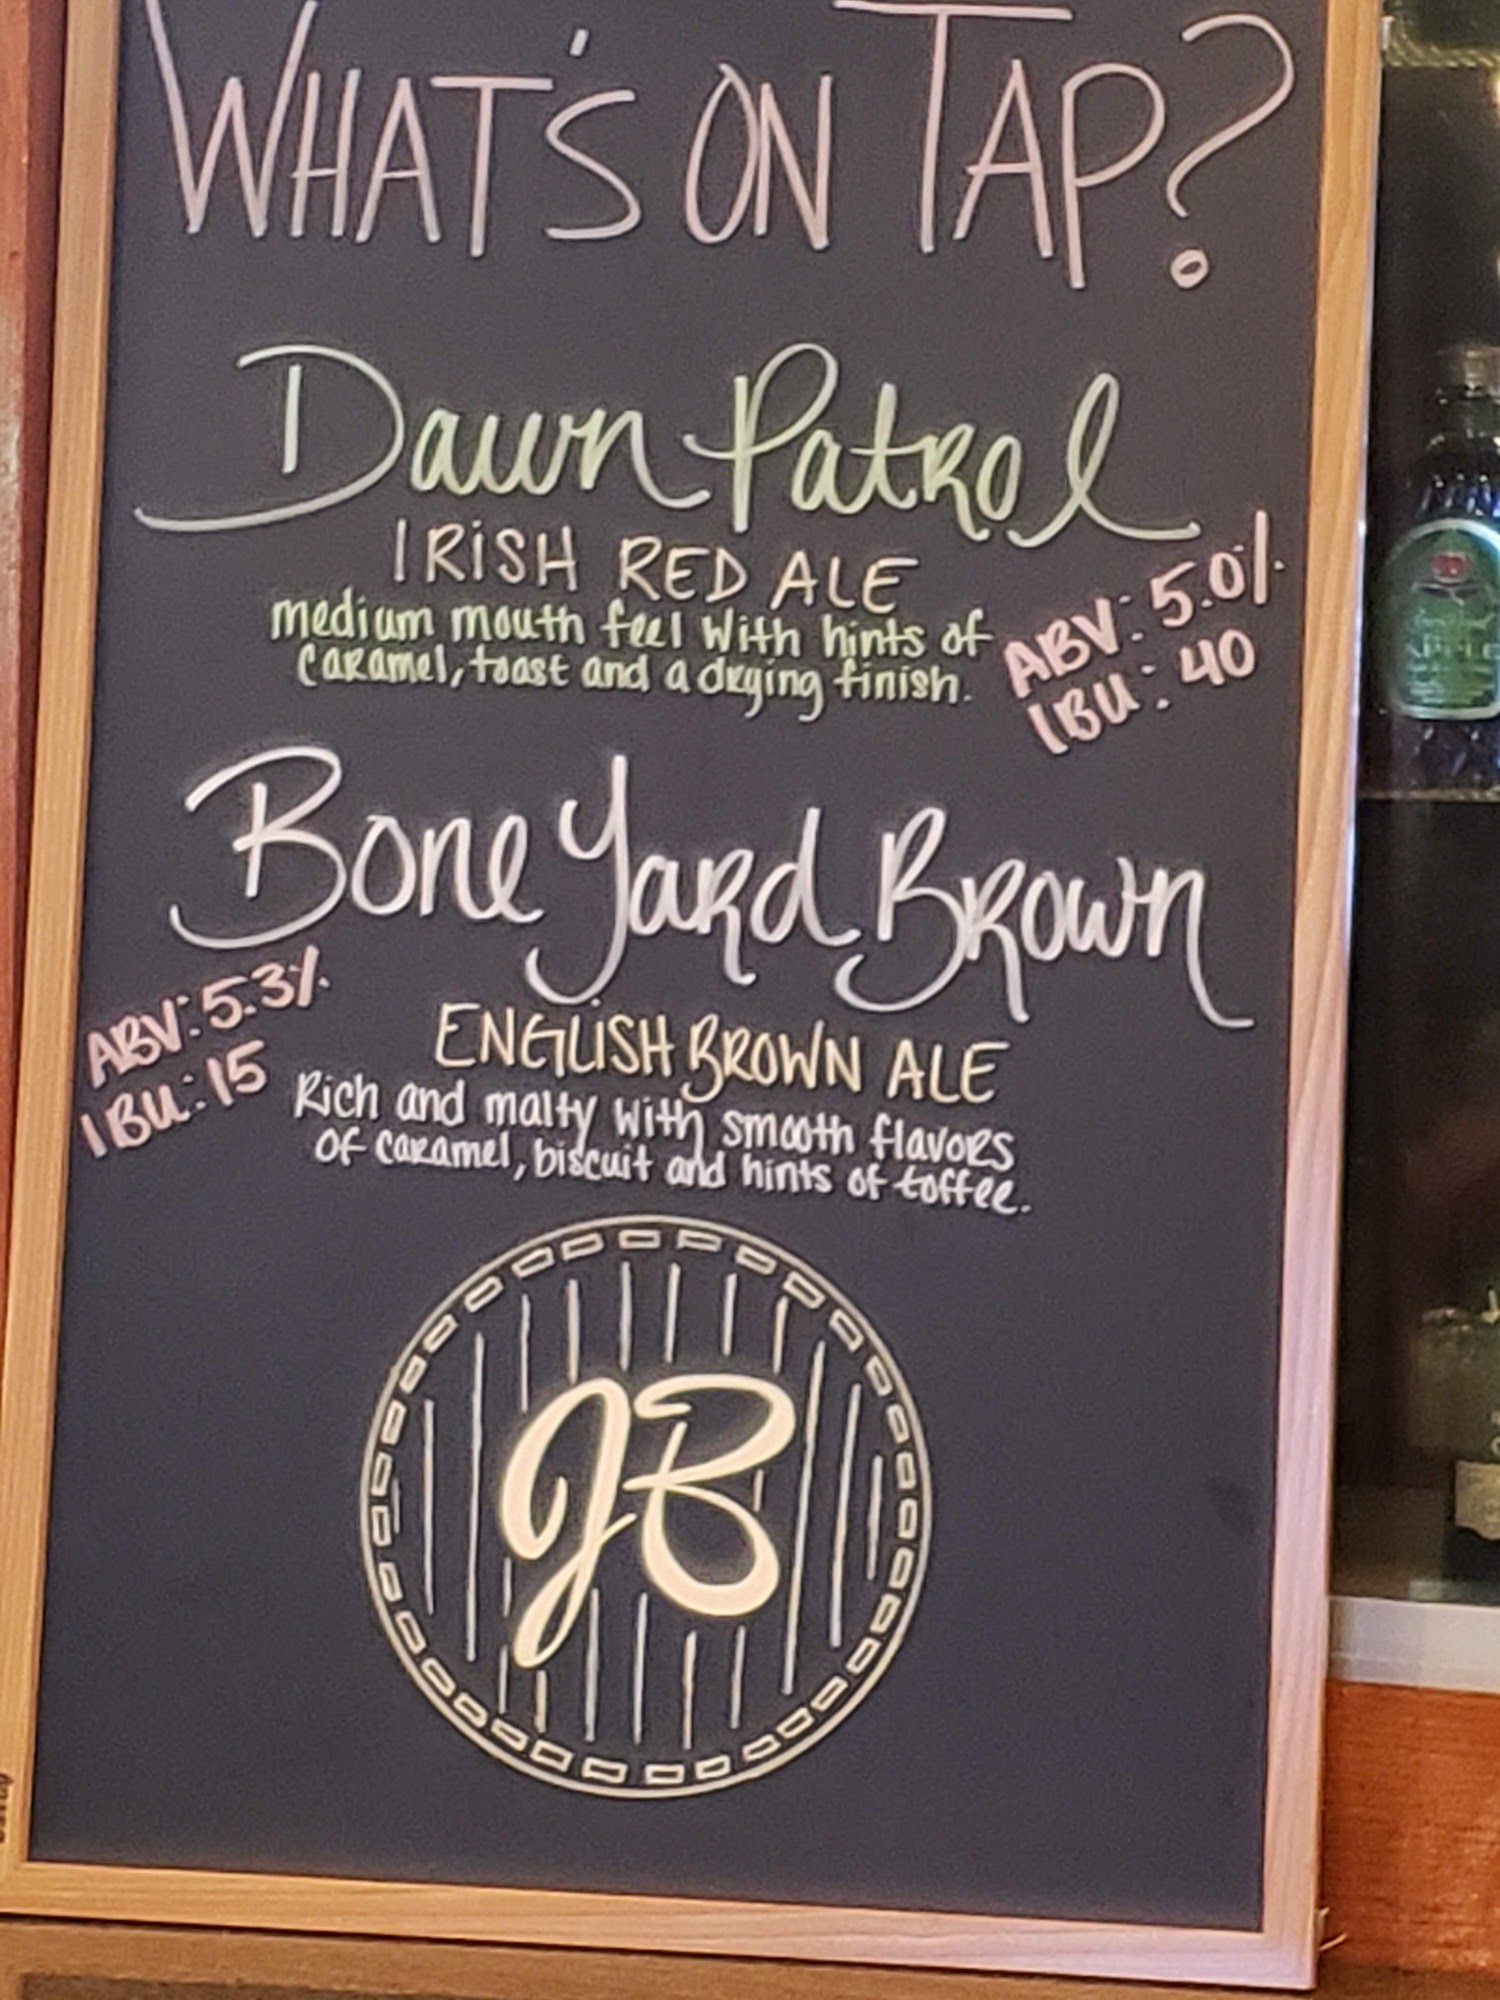 WHAT'S ON TAP?
Dawn Patrol
IRISH RED ALE
medium mouth feel with hints of
caramel, toast and a drying finish.
ABV: 5.0%
IBU: 40
Bone Yard Brown
ABV: 5.3%
IBU: 15
ENGLISH BROWN ALE
Rich and malty with smooth flavors
of caramel, biscuit and hints of toffee.
JB
APPLE